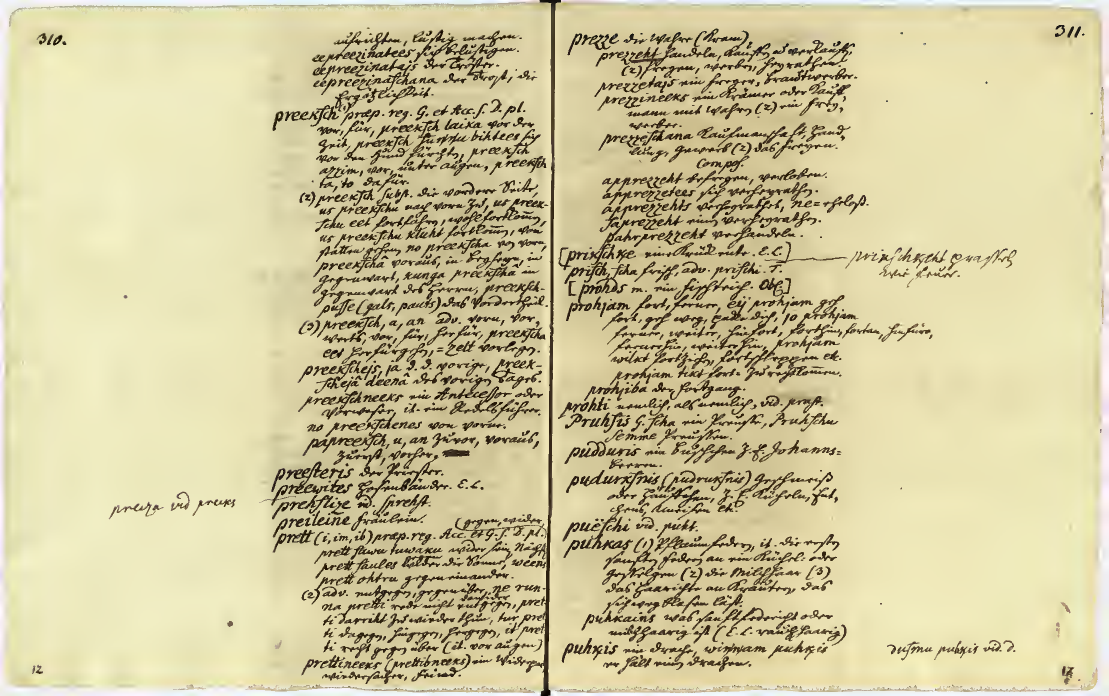 310.
aufrichten, lustig machen.
eepreezinatees sich belustigen.
eepreezinatajs der Tröster.
eepreezinaschana der Trost, die
Ergötzlichkeit.
preeksch præp. reg. G. et Acc. f. D. pl.
vor, für, preeksch laika vor der
Zeit, preeksch bihtees sich
vor den Hund fürchten, preeksch
azzim, vor, unter augen, preeksch
ta, to dafür.
(2) preeksch subst. die vordere Seite,
us preekschu nach vorn zu, us preek-
schu eet fortfahren, wohl fortkommen,
us preekschu kluht fortkommen, von
statten gehen, no preekscha von vorn,
preekschâ voraus, in in
gegenwart, kunga preekscha in
gegenwart des Herren, preeksch-
pusse (gals, pauts) das Vordertheil.
(3) preeksch, a, an adv. vorn, vor-
werts, vor, für, herfür, preekscha
eet herfürgehn, = zelt vorlegen.
preekschejs, ja d. d. vorige, preek-
schejâ deenâ des vorigen Tages.
preekschneeks ein Antecessor oder
Vorweser, it. ein Redelsführer.
no preekschenes von vorne.
papreeksch, u, an zuvor, voraus,
zuerst, vorher,
preesteris der Priester.
preewites Hosenbänder. E. L.
prehslize id. sprehst.
preileine Fräulein.
(gegen, wider,
prett (i, im, ib) præp. reg. Acc. et G. f. D. pl.
prett sawu tuwaku wider sein Nächst
prett saules wider die Sonne, weens
prett ohtru gegen einander.
(2) adv. entgegen, gegenüber, ne run-
dawider
na pretti rede nicht entgegen, pret-
ti darriht zu wieder thun, tur pret-
ti dagegen, hingegen, hergegen, it pret-
ti recht gegen über (it. vor augen)
prettineeks (prettibneeks) ein Widerpart
wiedersacher, Feind.
preeza vid preeks
12
311.
prezze die Wahre (Kram)
prezzeht handeln, kauffen u verkauffen,
(2) freyen, werben, heyrathen.
prezzetajs ein freyer, brautwerber.
prezzineeks ein Krämer oder Kauff-
mann mit Wahren (2) ein Frey-
werber.
prezzeschana Kaufmanschaft, Hand-
lung, Gewerb (2) das freyen.
Compos.
apprezzeht befreyen, verloben.
apprezzetees sich verheyrathen.
apprezzehts verheyrathet, ne = ehelos.
saprezzeht eine verheyrathen.
pahrprezzeht verhandeln.
[prikschke eine Krükente. E. L.]
prinschkeht prasseln
wie feuer.
prisch, scha frisch adv. prischi. T.
[prohds m. ein fischteich. Obl.]
prohjam fort, ferner, eij prohjam geh
fort, geh weg, packe dich, jo prohjam
ferner, weiter, hinfort, forthin, fortan, hinführo,
fernerhin, weiterhin, prohjam
wilkt fortziehen, fortschleppen etc.
prohjam tikt fort- zu rechtkommen.
prohjiba der fortgang.
prohti nemlich, als nemlich, vid. prast.
Pruhsis G. scha ein Preusse, Pruhschu
semme Preussen.
pudduris ein büschchen Z. E. Johanns-
beeren.
pudurksnis (pudruksnis) Geschmeiß
oder Häufchen, Z. E. Kücheln, Ent-
chens, Ameisen etc.
puëschi vid. puht.
puhkas (1) Pflaumfedern, it. die ersten
sanften federn an ein Küchel oder
gesselgen (2) die Milchhaar (3)
das Haarichte an Kräuten, das
sich weg blasen läst.
puhkains was sanftfedericht oder
milchhaarig ist (E. L. rauchhaarig)
puhkis ein drache, wiñnam puhkis
er hält einen drachen.
dusmu puhkis vid. d.